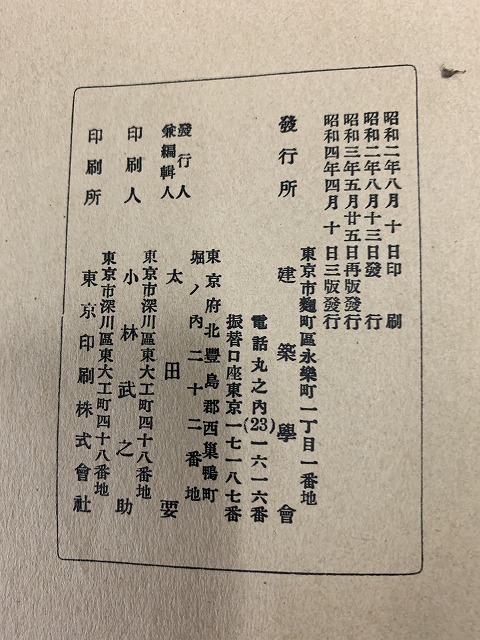 昭和二年八月十日印刷
昭和二年八月十三日發行
昭和三年五月廿五日再版發行
昭和四年四月十日三版發行
東京市麴町區永樂町一丁目一番地
發行所 建築學會
電話丸之內(23)一六一六番
振替口座東京一七一八七番
東京府北豐島郡西巢鴨町
堀ノ內二十二番地
發行人
兼編輯人 太田要
東京市深川區東大工町四十八番地
印刷人 小林武之助
東京市深川區東大工町四十八番地
印刷所 東京印刷株式會社